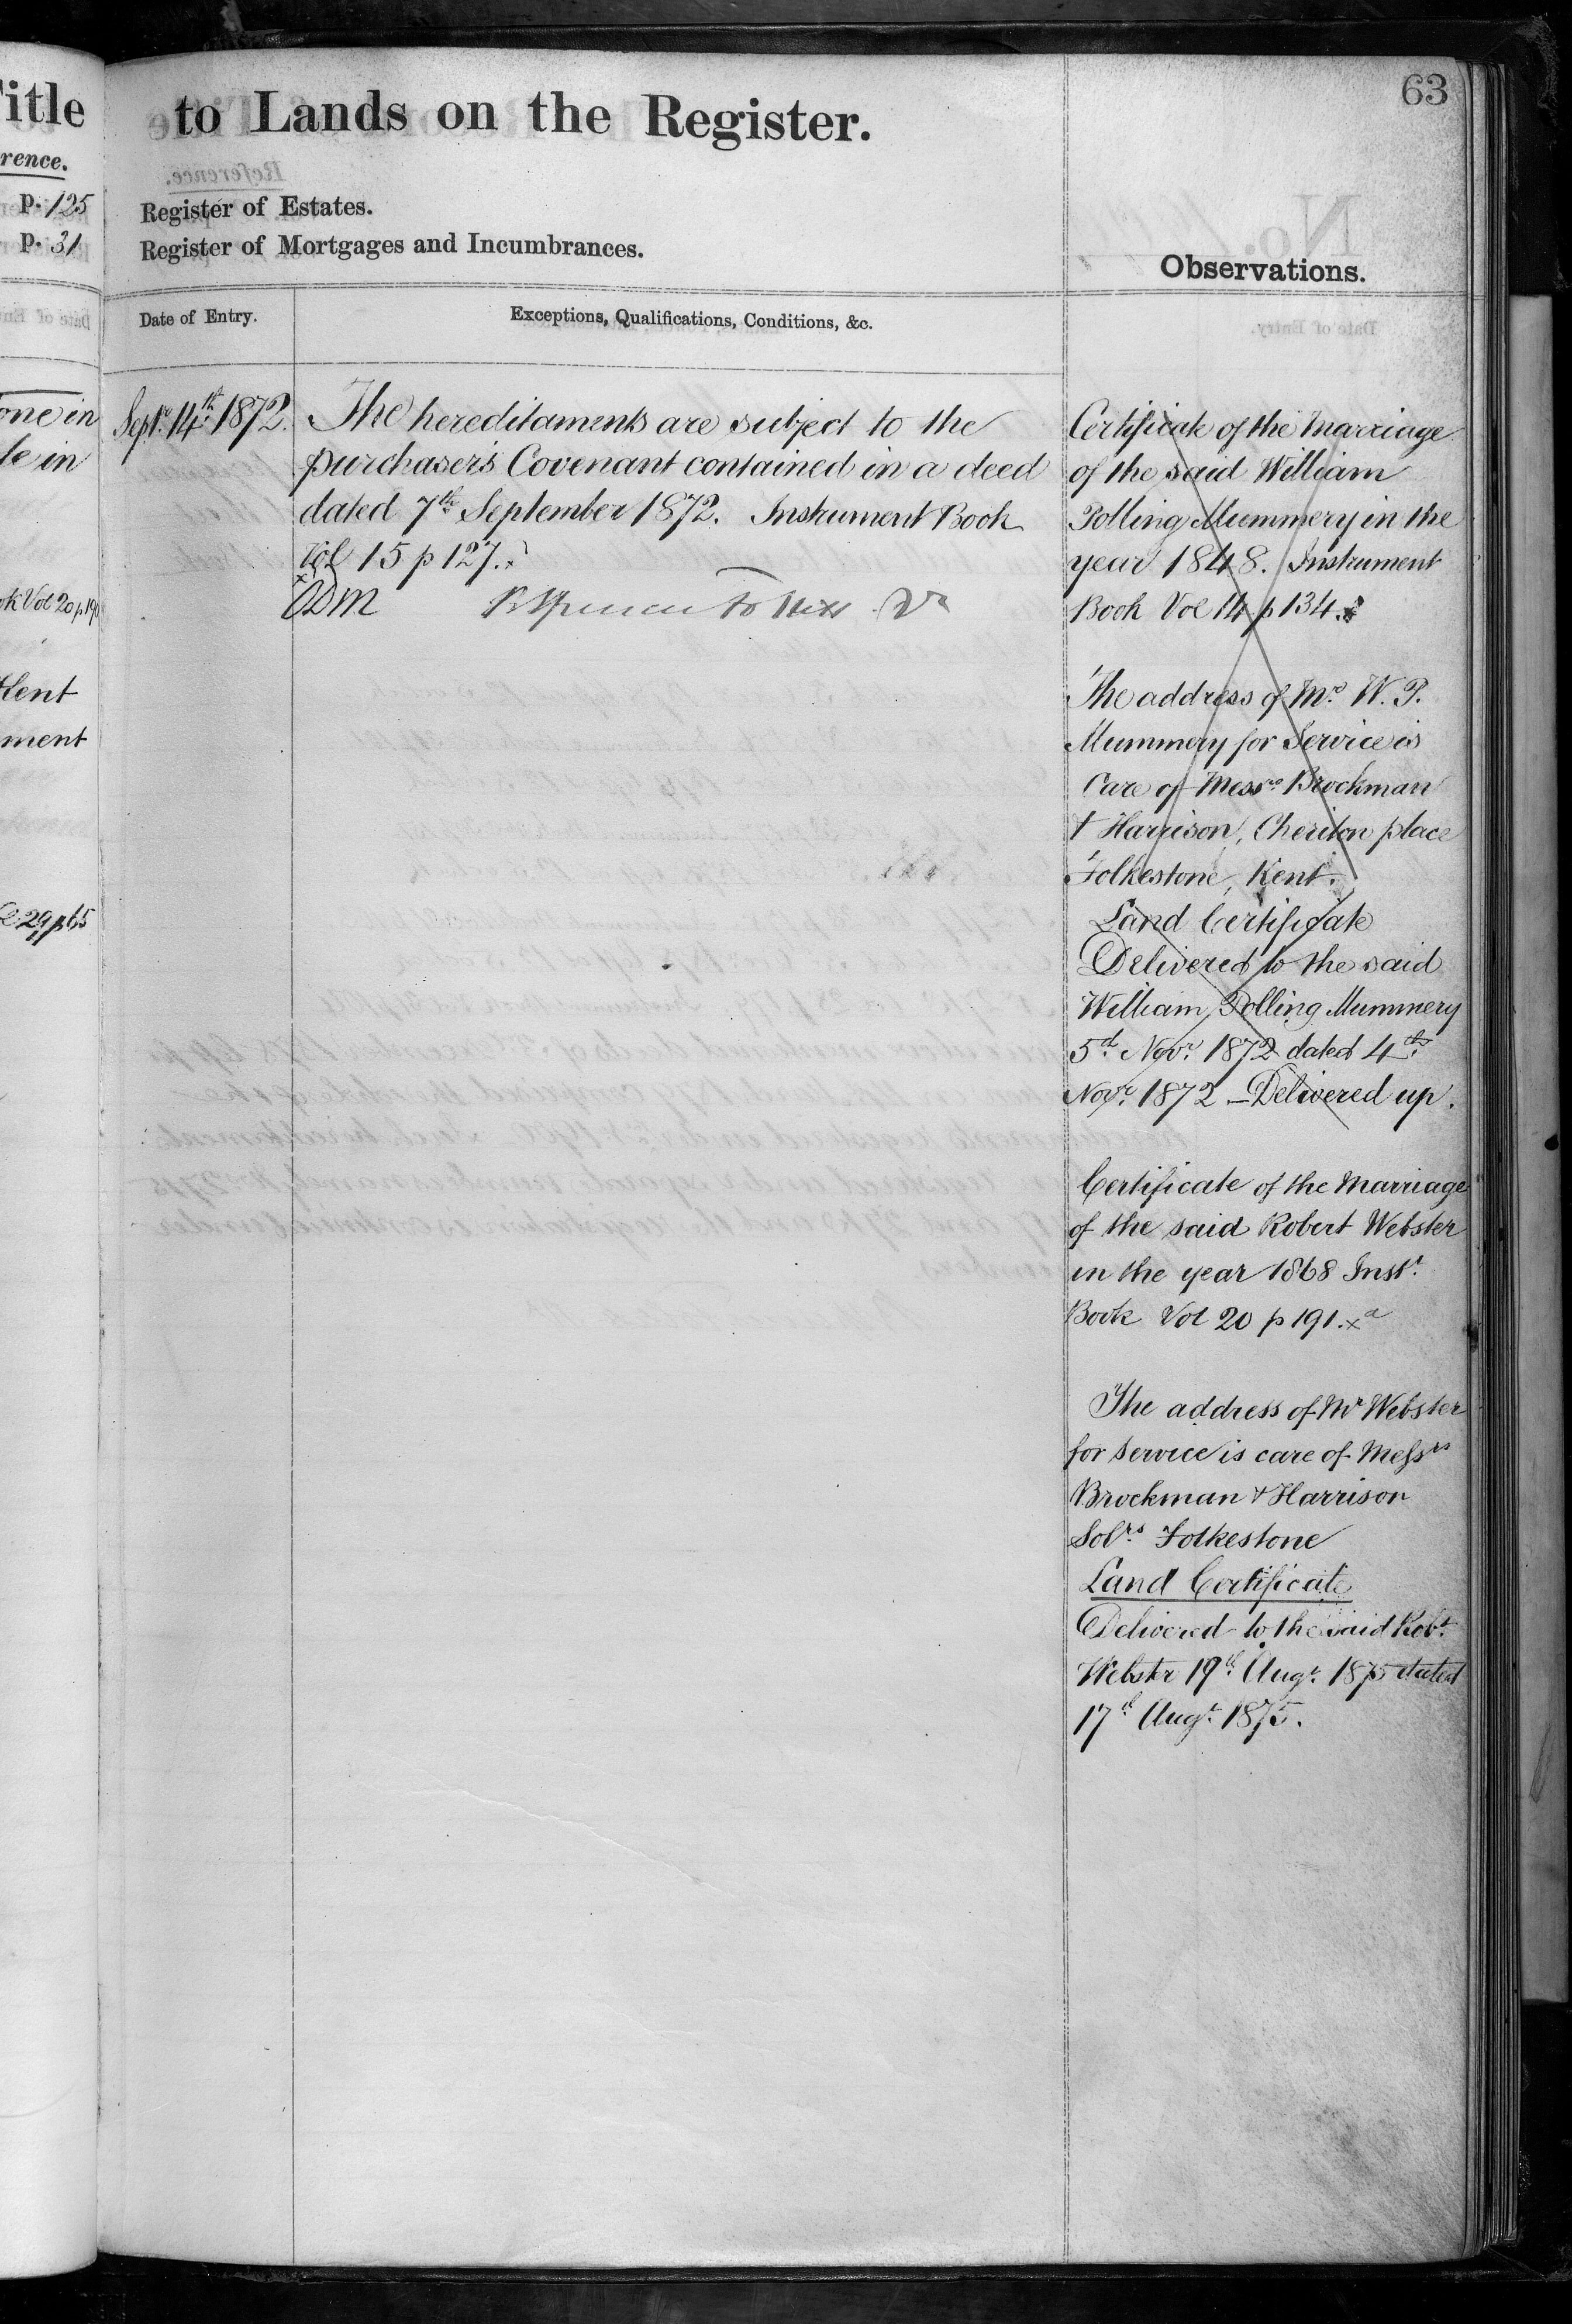 itle
rence.
p. 125
p. 31
one in
le in
ok Vol 20 p. 190
Kent
ment
29 p 65
63
to Lands on the Register.
Register of Estates.
Register of Mortgages and Incumbrances.
Observations.
Date of Entry.
Exceptions, Qualifications, Conditions, &c.
Septr. 14th 1872.
The hereditaments are subject to the
purchaser's Covenant contained in a deed
dated 7th September 1872. Instrument Book
Vol 15 p 127. x
x ODM
Certificate of the Marriage
of the said William
Polling Mummery in the
year 1848. Instrument
Book Vol 14 p 134.
The address of Mr. W. P.
Mummery for Service is
Care of Messrs. Brockman
& Harrison, Cheriton place
Folkestone, Kent.
Land Certificate
Delivered to the said
William Polling Mummery
5th Novr. 1872 dated 4th
Novr. 1872 – Delivered up.
Certificate of the Marriage
of the said Robert Webster
in the year 1868 Instr.
Book Vol 20 p 191. x a
The address of Mr Webster
for service is care of Messrs
Brockman & Harrison
Solrs Folkestone
Land Certificate
Delivered to the said Robt.
Webster 19th Augt. 1875 dated
17th Augt. 1875.